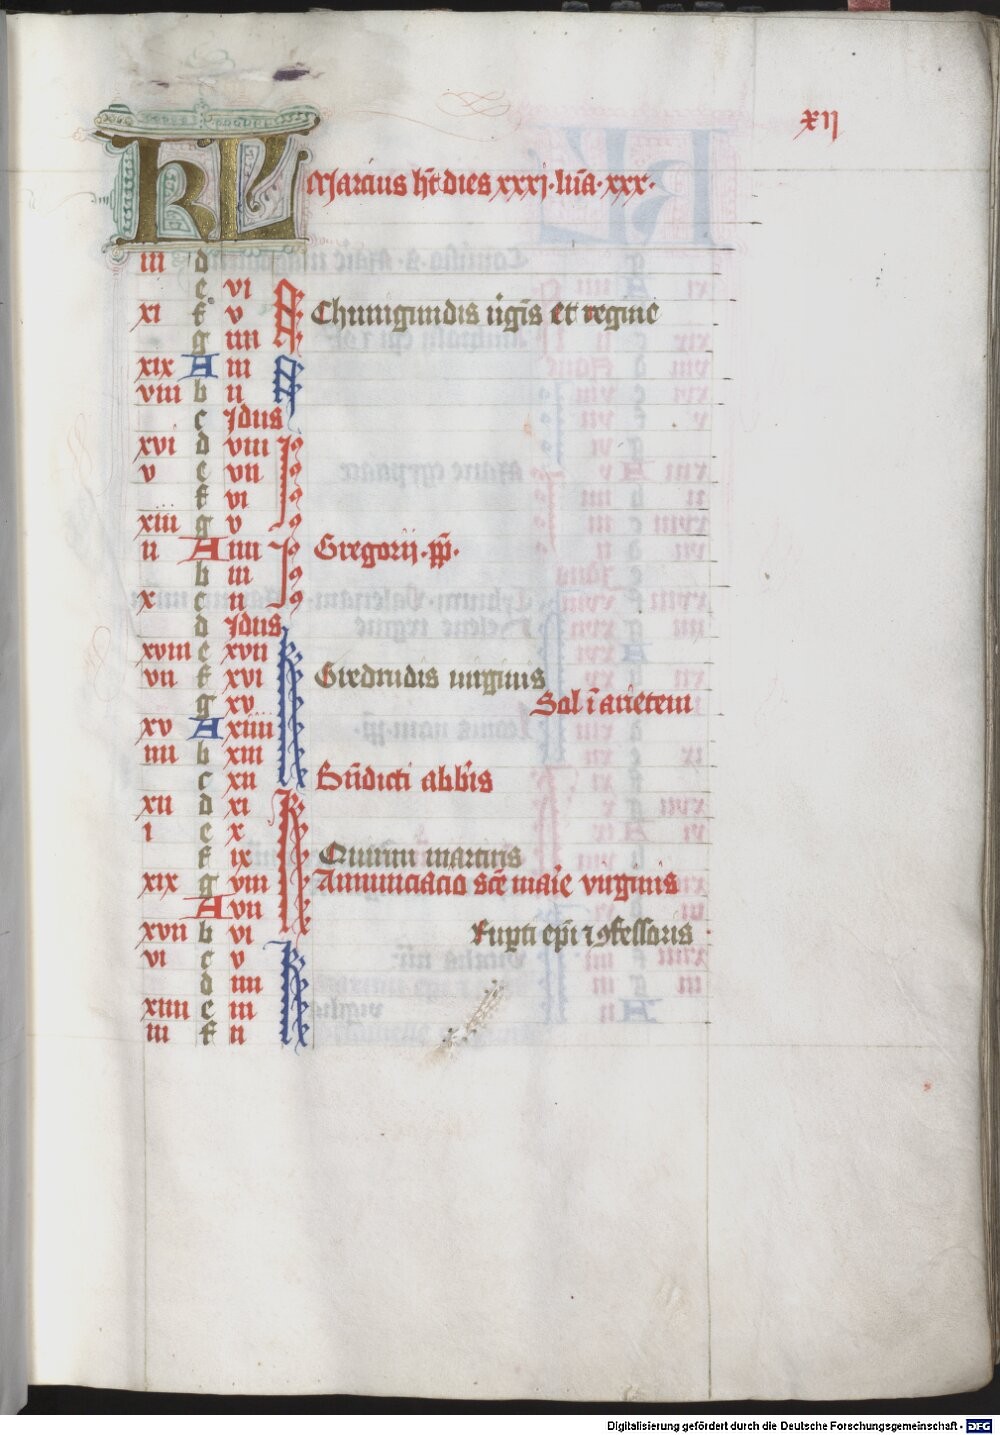 xij
KL Marcius ht dies xxxj · lūa · xxx ·
iii d
e vi
xi f v Chunigundis v̾gīs et regine
g iiii
xix A iii
viii b ii
c Idus
xvi d viii
v e vii
f vi
xiii g v
ii A iiii Gregorii · pp̄ ·
b iii
x c ii
d Idus
xviii e xvii
vii f xvi Gerdrudis virginis
g xv Sol ī arietem
xv A xiiii
iiii b xiii
c xii Bn̄dicti abb̄is
xii d xi
i e x
f ix Quirini martiris
xix g viii Annunciacio scē maīe virginis
A vii
xvii b vi Rup̱ti ep̄i ⁊ ꝯfessoris
vi c v
d iiii
xiiii e iii
iii f ii
Digitalisierung gefördert durch die Deutsche Forschungsgemeinschaft - DFG